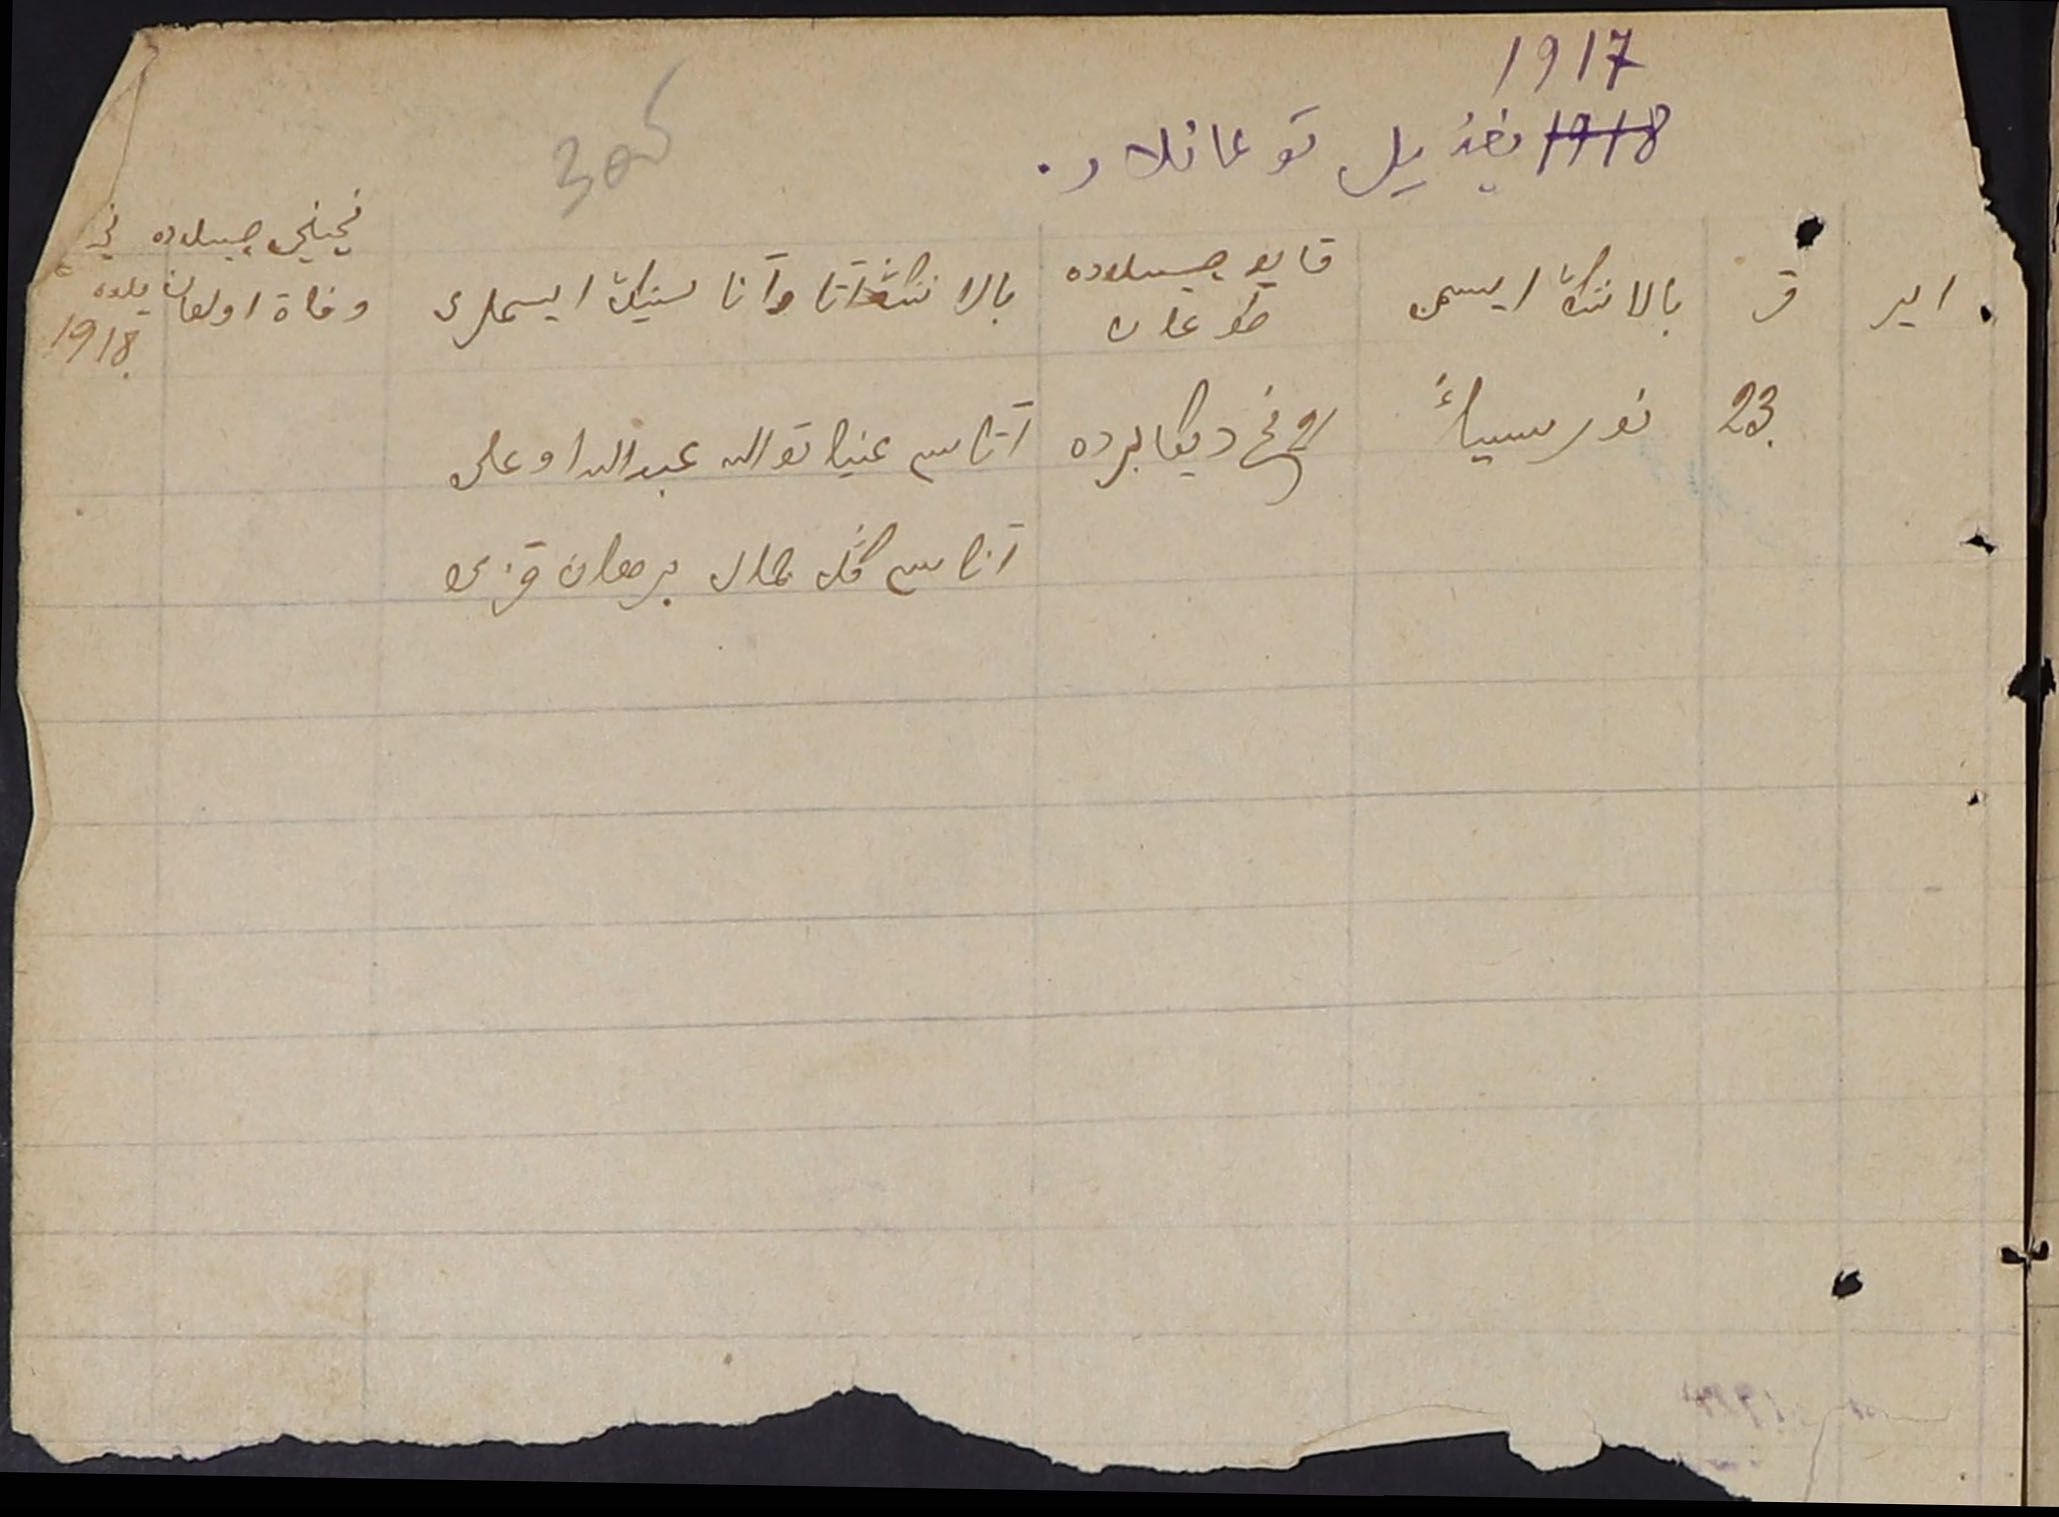 1917
1918 نچی یل توغانلار.
305
ایر
ق
بالاننڭ ایسمی
قایو چیسلاده
طوغان
بالاننڭ آتا وآنا سینڭ ایسملری
نچینچی چیسلاده
وفاة اولغان
یلده
1918.
23.
نور سیاء
نچی دیکابرده
آتاسی عنایة الله عبدالله اوغلی
آناسی گل جمال برهان قزی